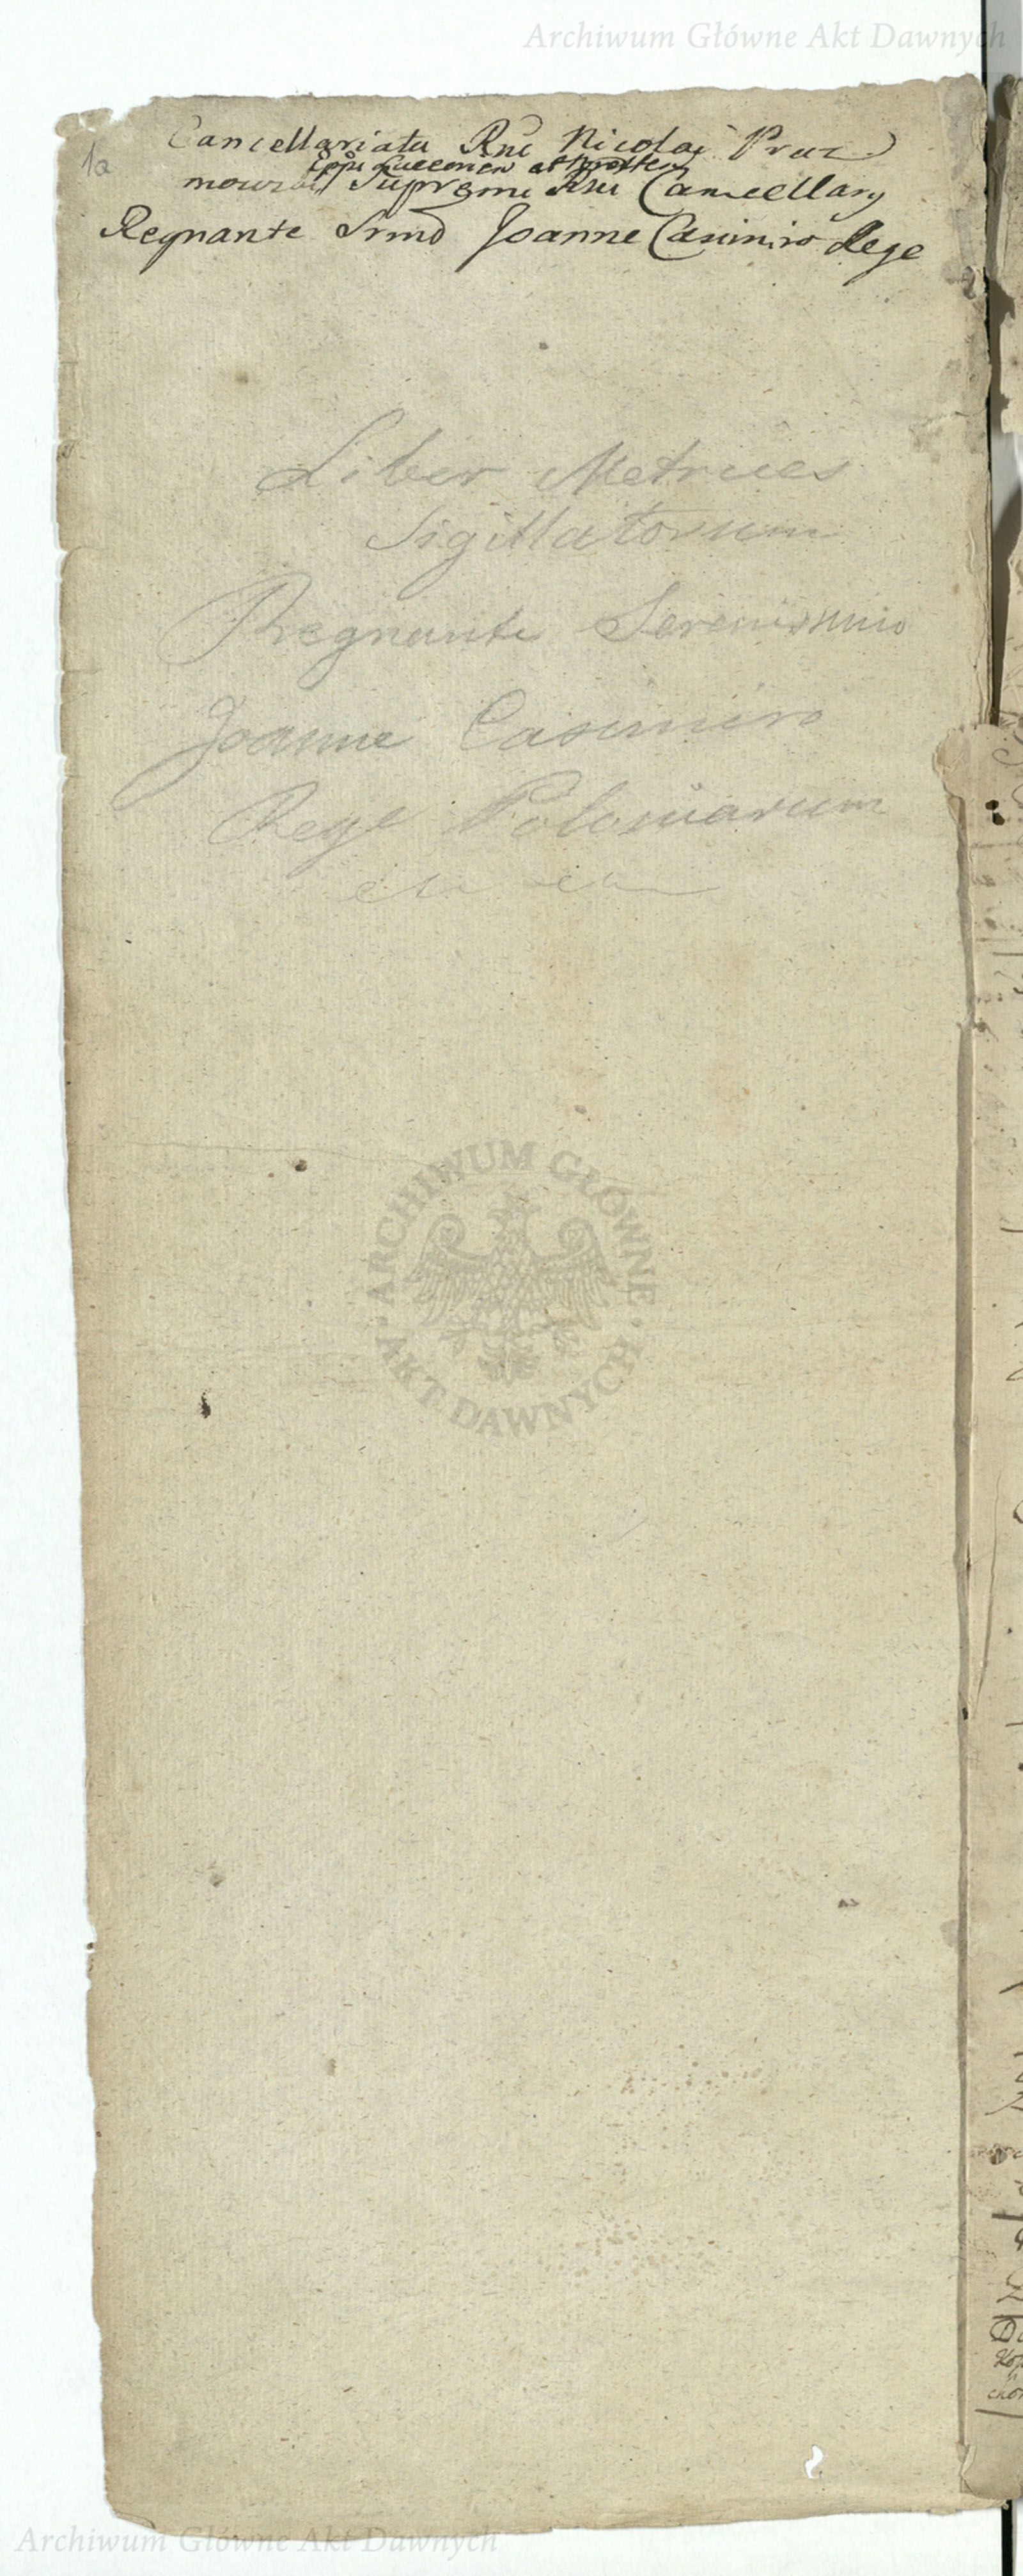 Archiwum Główne Akt Dawnych
1a
Cancellariatu Rndi Nicolai Praz
Eppi Lucceorien
mows Supremi Rni Cancellary
Regnante Srmo Joanne Casimiro Rege
Liber Metrices
Sigillatorum
Regnante Serenissimo
Joanne Casimiro
Rege Poloniarum
etc etc
ARCHIWUM GŁÓWNE
AKT DAWNYCH
Archiwum Główne Akt Dawnych